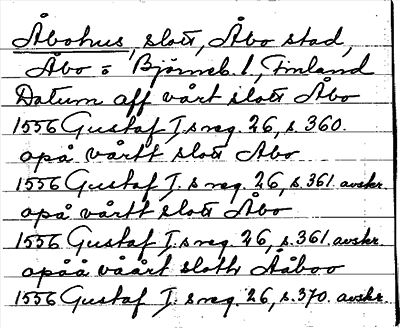 Åbohus, slott, Åbo stad,
Åbo o Björneb. l, Finland
Datum aff vårt slott Åbo
1556 Gustaf I:s reg. 26, s. 360.
opå vårtt slott Åbo
1556 Gustaf I:s reg. 26, s. 361. avskr.
opå vårtt slott Åbo
1556 Gustaf I:s reg. 26, s. 361 avskr.
opåå våårt sloth Ååboo
1556 Gustaf I:s reg. 26, s. 370. avskr.